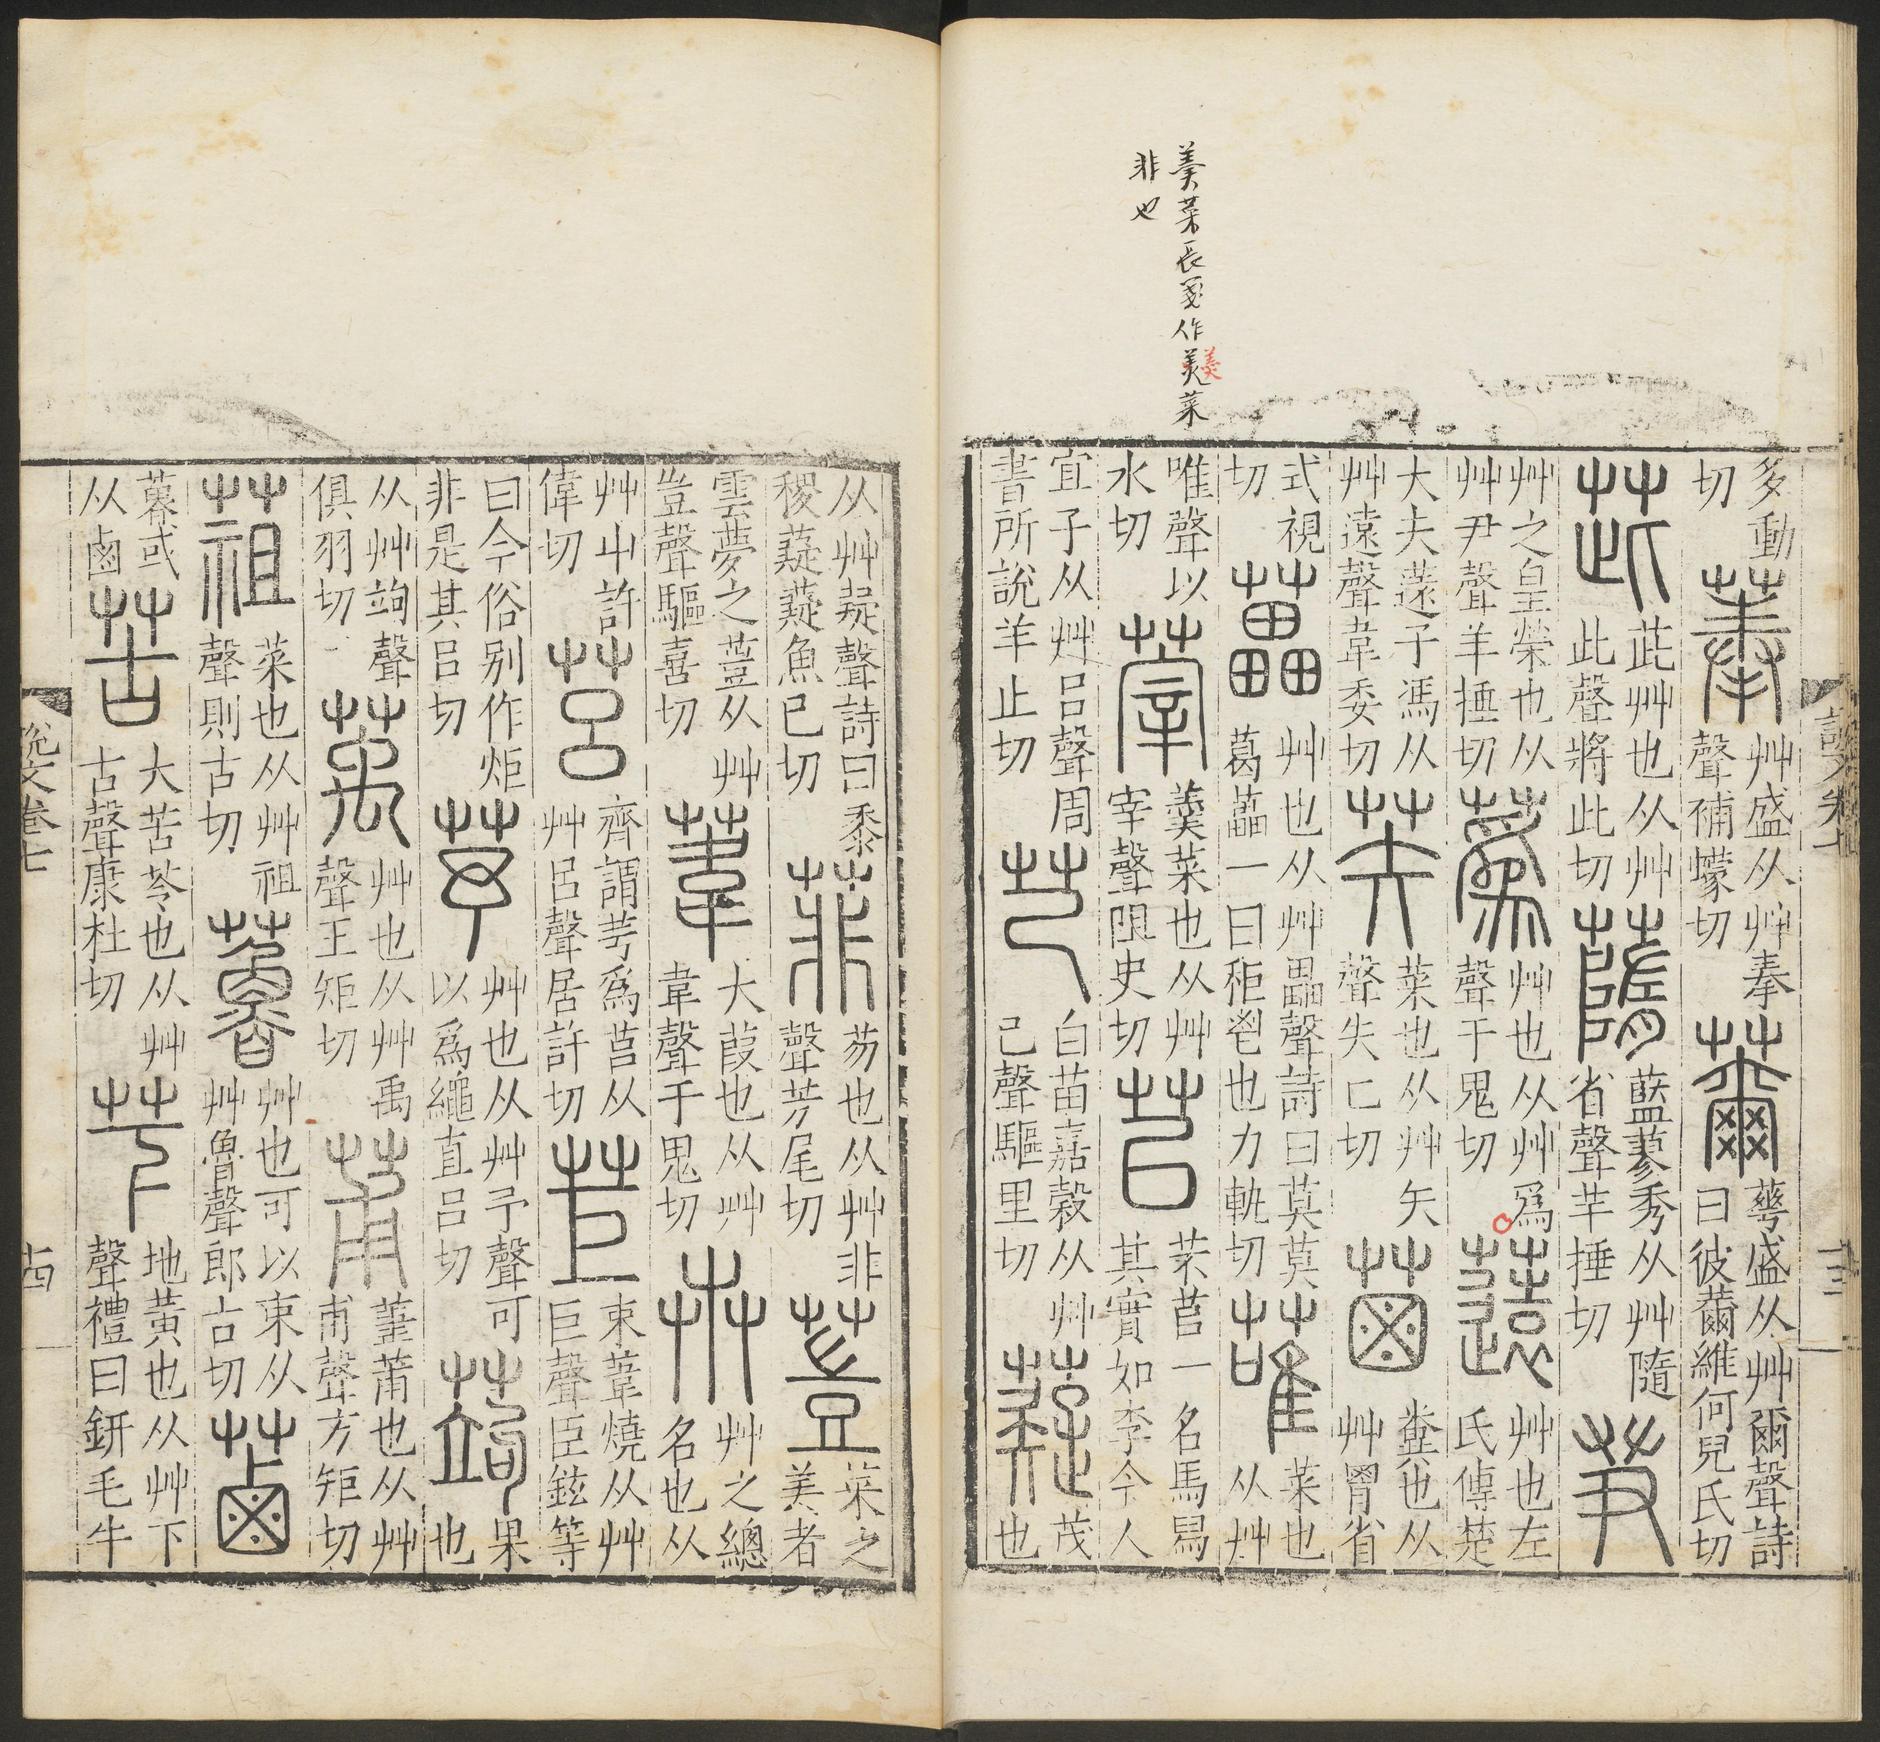 羹菜長箋作羙菜
羹
非也
說文卷七
十三
多動切 菶 艸盛从艸奉聲補蠓切 薾 蕐盛从艸爾聲詩曰彼薾維何兒氏切
茈 茈艸也从艸此聲將此切 䕉 藍蓼秀从艸隨省聲羋捶切 芛
艸之皇榮也从艸尹聲羊捶切 蒍 艸也从艸爲聲于鬼切 薳 艸也左氏傳楚
大夫薳子馮从艸遠聲韋委切 菜也从艸矢聲失匕切 糞也从艸胃省
式視切 藟 艸也从艸畾聲詩曰莫莫葛藟一曰秬鬯也力軌切 蓶 菜也从艸
唯聲以水切 䔂 羹菜也从艸宰聲阻史切 苢 芣苢一名馬舄其實如李令人
宜子从艸㠯聲周書所說羊止切 芑 白苗嘉穀从艸己聲驅里切 薿 茂也
从艸疑聲詩曰黍稷薿薿魚已切 菲 芴也从艸非聲芳尾切 䔇 菜之美者
雲夢之䔇从艸豈聲驅喜切 葦 大葭也从艸韋聲于鬼切 卉 艸之總名也从
艸屮許偉切 莒 齊謂芌爲莒从艸呂聲居許切 苣 束葦燒从艸巨聲臣鉉等
曰今俗别作炬非是其呂切 芧 艸也从艸予聲可以爲繩直呂切 蒟 果也
从艸竘聲俱羽切 萭 艸也从艸禹聲王矩切 莆 萐莆也从艸甫聲方矩切
菜也从艸祖聲則古切 艸也可以束从艸魯聲郎古切 蓾
或从鹵 苦 大苦苓也从艸古聲康杜切 芐 地黃也从艸下聲禮曰鈃毛牛
說文卷七
十四